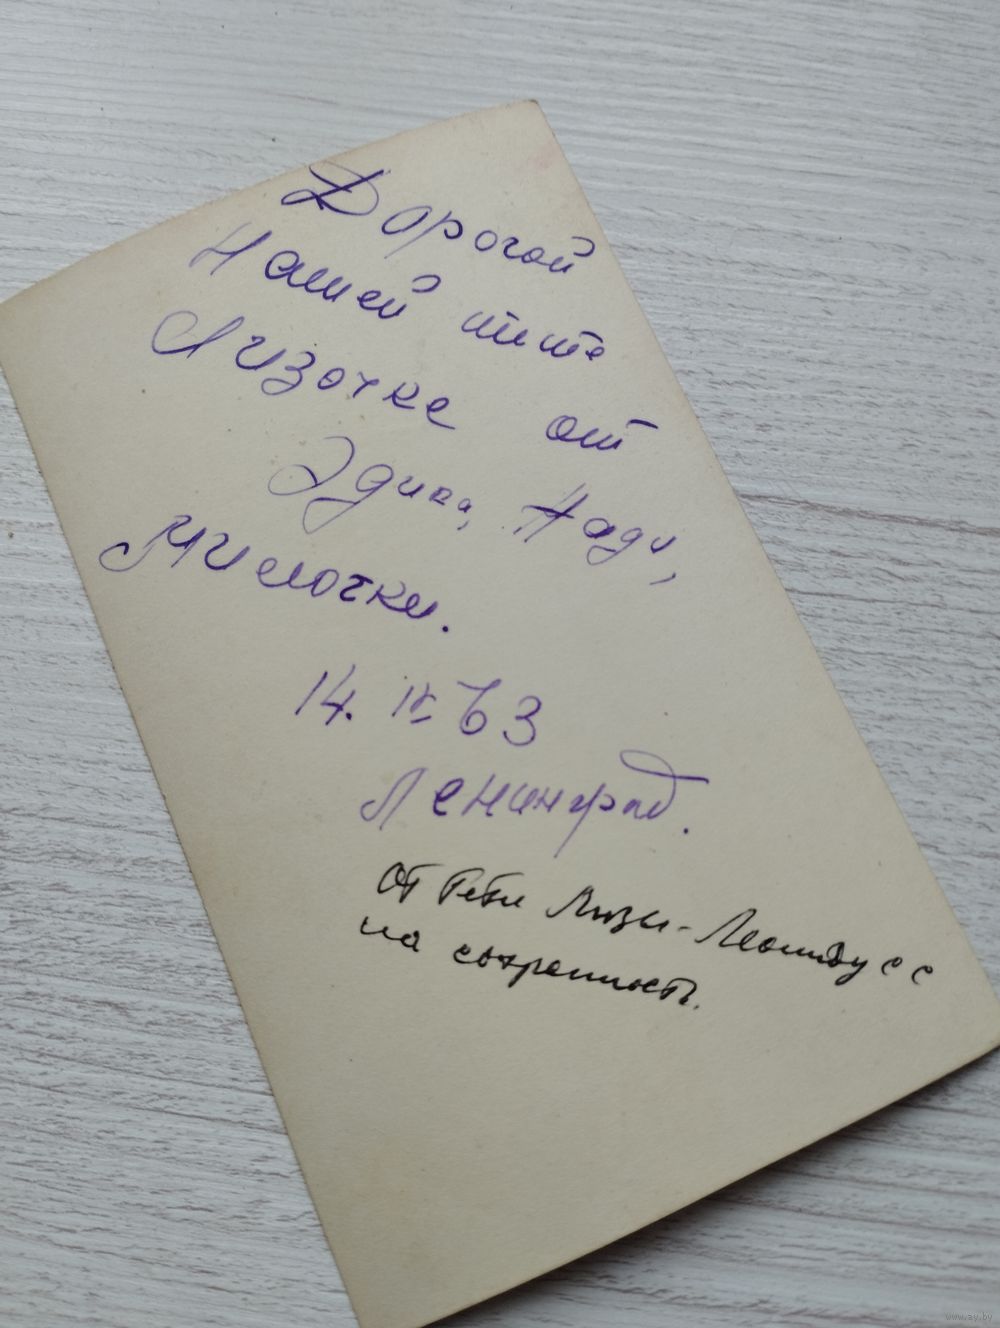 Дорогой
Нашей тёте
Лизочке от
Эдика, Нади,
Милочки.
14. IX 63
Ленинград.
От тёти Лизы - Леониду
на сохранность.
www.ay.by